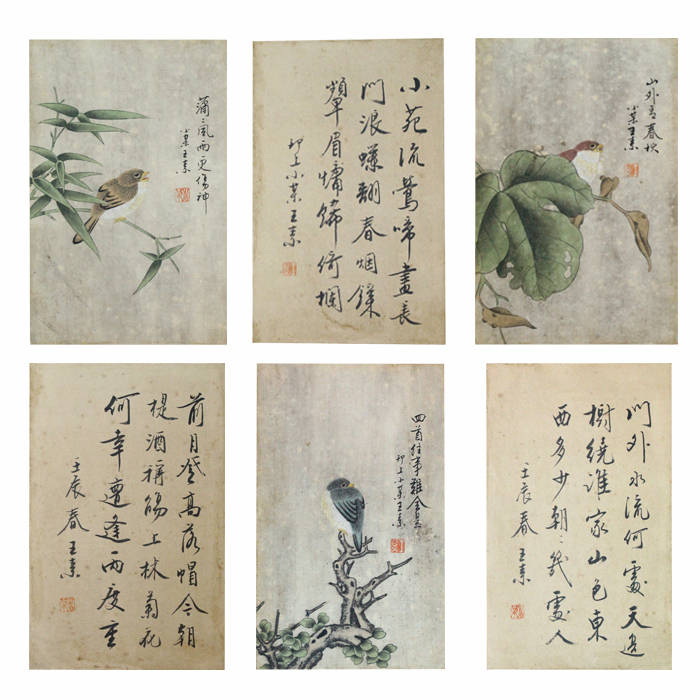 蒲々風雨更傷神
小某王素
小苑流鶯啼晝長
門浪蝶翻春烟鎖
顰眉慵飾倚欄
邗上小某王素
山外春
小某王素
前月登高落帽今朝
提酒稱觴上林菊花
何幸遭逢兩度重
壬辰春王素
首往事難
邗上小某王素
門外水流何處天邊
樹繞誰家山色東
西多少朝々幾處人
壬辰春王素